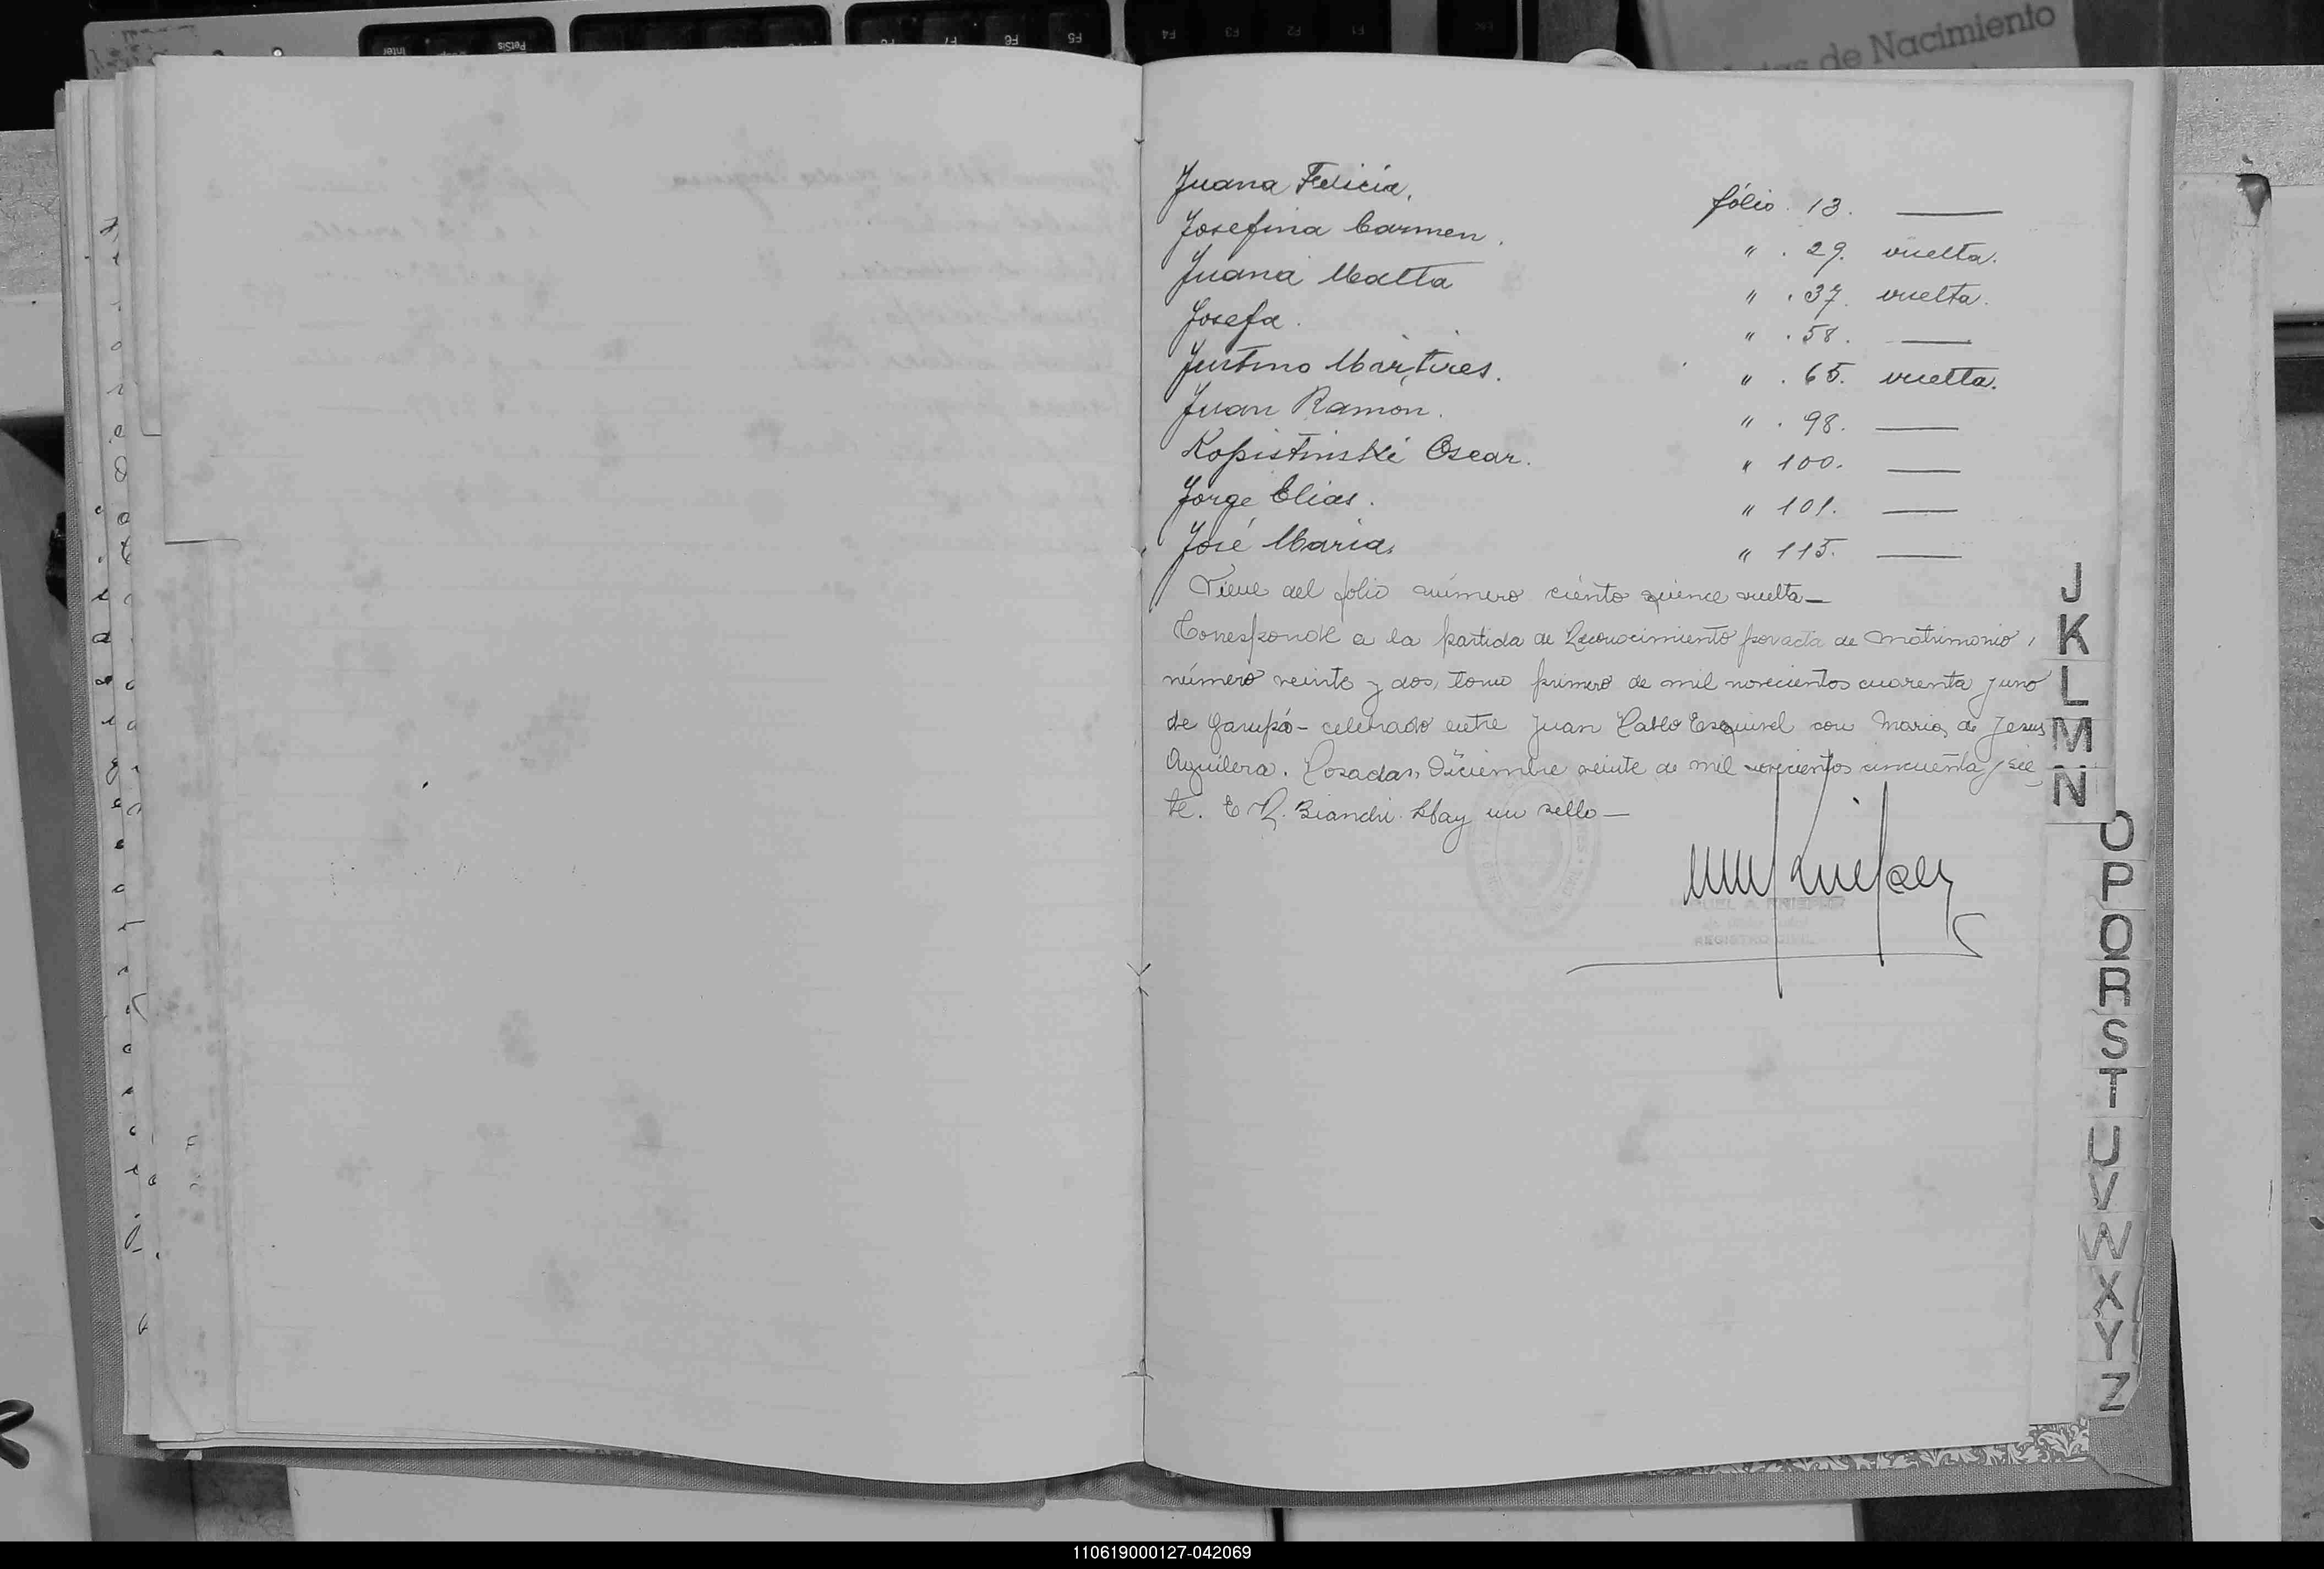 Actas de Nacimiento
Juana Felicia. fólio. 13. ———
Josefina Carmen. " . 29. vuelta.
Juana Matta " . 37. vuelta.
Josefa. " . 58. ———
Justino Martires. " . 65. vuelta.
Juan Ramón. " . 98. ———
Kopistinski Oscar. " 100. ———
Jorge Elias. " 101. ———
José Maria. " 115. ———
Viene del folio número ciento quince vuelta—
Corresponde a la partida de Reconocimiento por acta de matrimonio,
número veinte y dos, tomo primero de mil novecientos cuarenta y uno
de Garupá - celebrado entre Juan Pablo Esquivel con Maria de Jesus
Aguilera. Posadas, Diciembre veinte de mil novecientos cincuenta y sie
te. E R. Bianchi. Hay un sello—
MIGUEL A.
REGISTRO CIVIL
J
K
L
M
N
O
P
Q
R
S
T
U
V
W
X
Y
Z
110619000127-042069